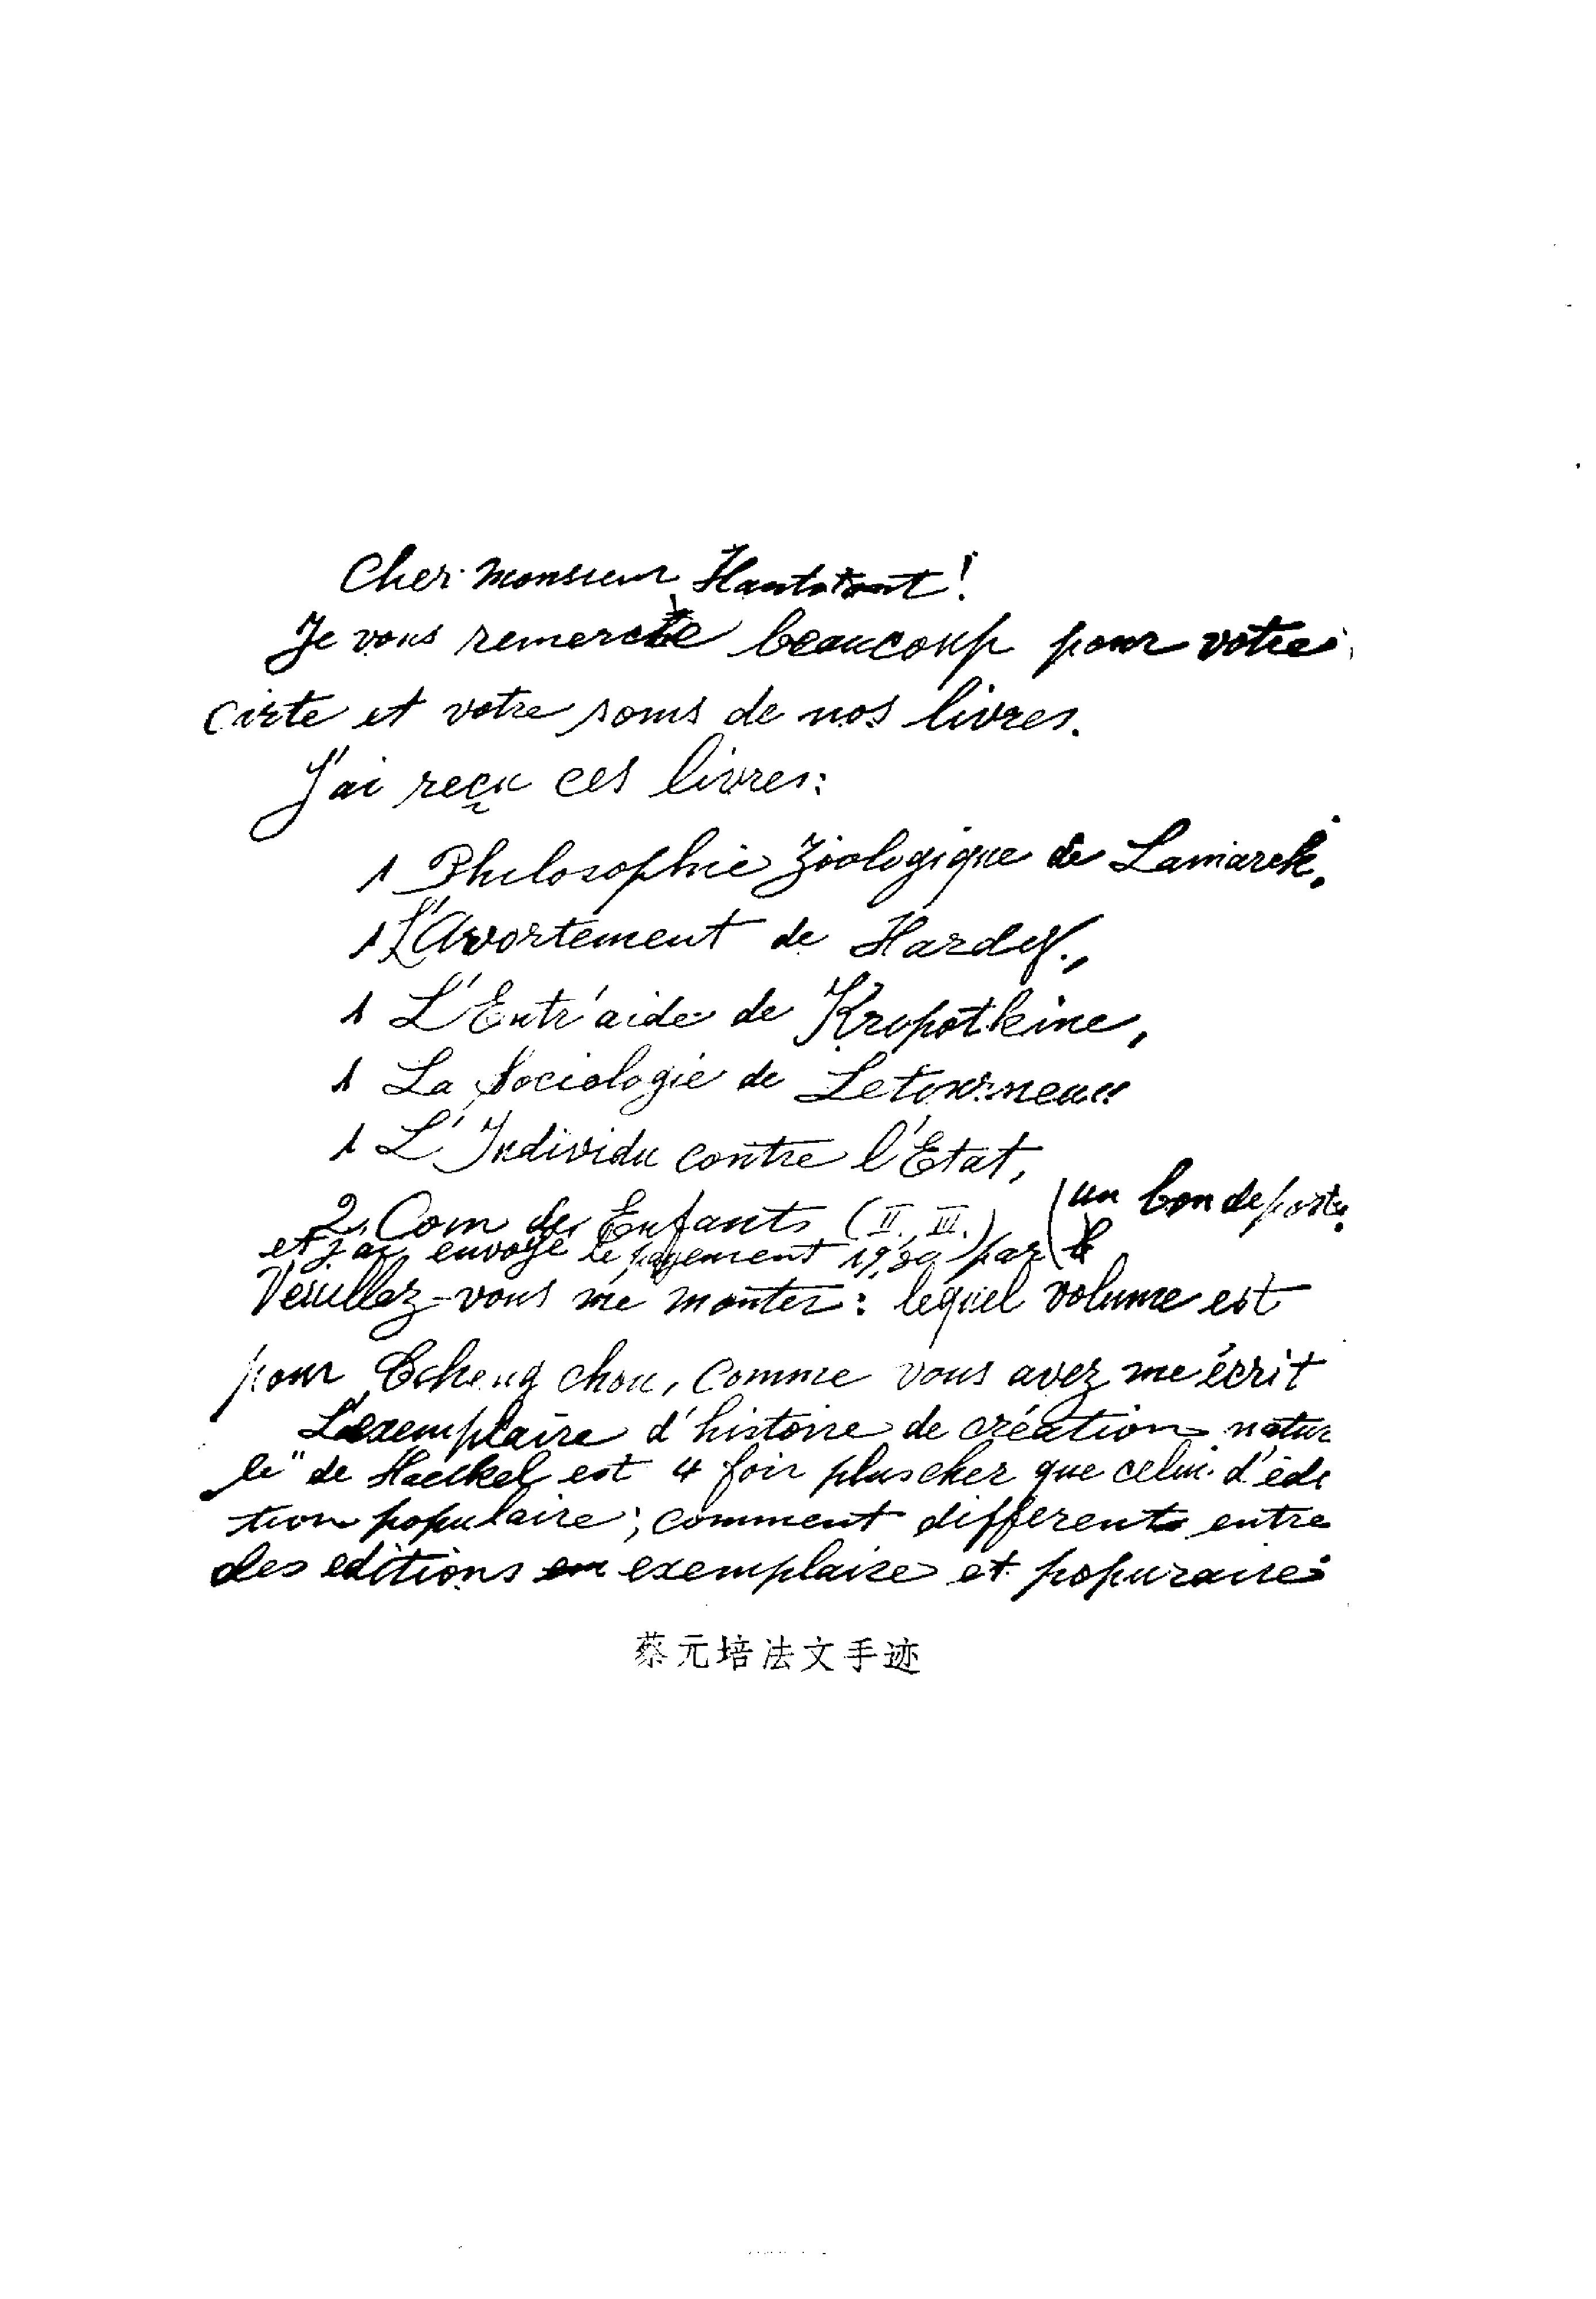 Cher Monsieur
Je vous remercie beaucoup pour votre
carte et votre soins de nos livres.
J'ai reçu ces livres:
1 Philosophie Zoologique de Lamarck,
1 L'Avortement de Hardy.,
1 L'Entr'aide de Kropotkine,
1 La Sociologie de Letourneau
1 L'Individu contre l'Etat,
2 Com des Enfants (II, III.)
un bon de poste.
et j'ai envoyé le payement par
Veuillez-vous me monter: lequel volume est
pour Tcheng chou, comme vous avez me écrit
L'exemplaire d'histoire de création natur
le" de Haeckel est 4 fois plus cher que celui d'édi
tion populaire; comment different entre
des editions en exemplaire et popuraire
蔡元培法文手迹